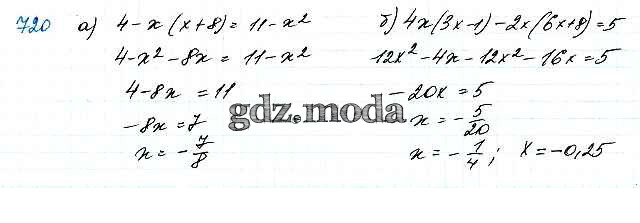 720 а) 4 - x (x+8) = 11 - x²
4 - x² - 8x = 11 - x²
4 - 8x = 11
-8x = 7
x = - 7/8
б) 4x(3x-1) - 2x(6x+8) = 5
12x² - 4x - 12x² - 16x = 5
-20x = 5
x = - 5/20
x = - 1/4 ; x = -0,25
gdz.moda